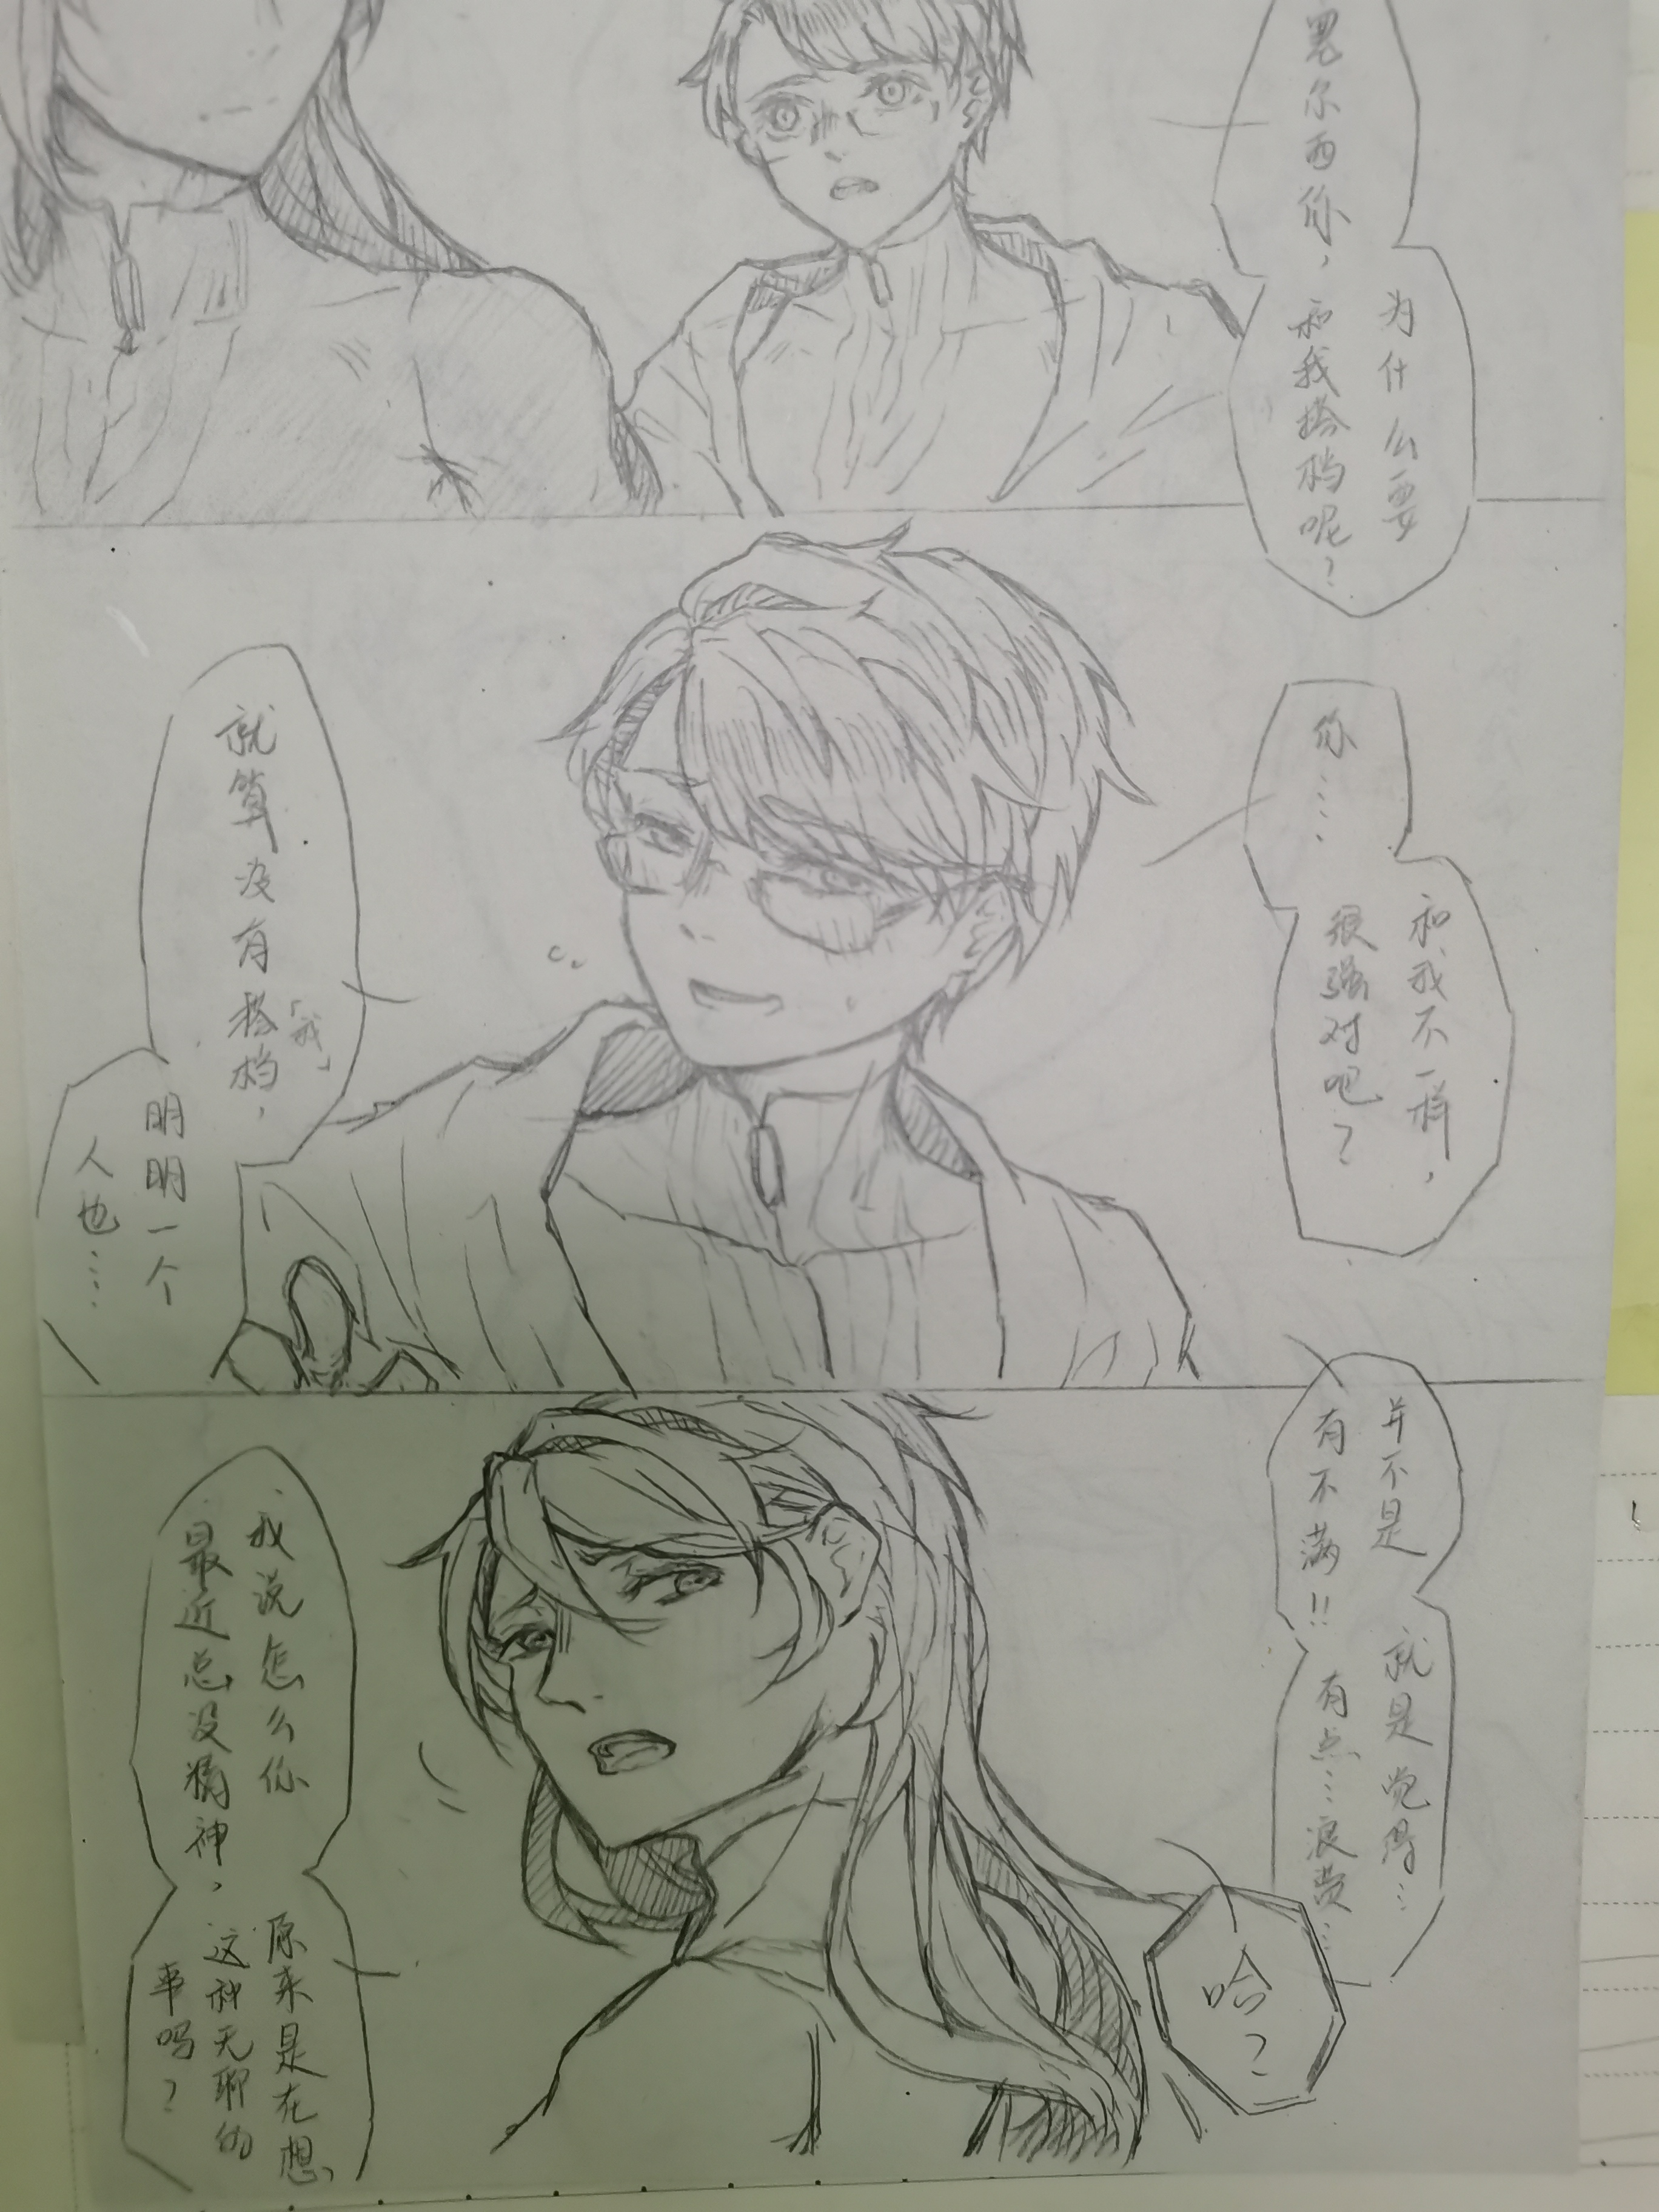 尔西你，
为什么要
和我搭档呢？
你……
和我不一样，
很强对吧？
就算没有
「我」
搭档，
明明一个
人也……
并不是
有不满!!
就是觉得……
有点……浪费……
哈？
我说怎么你
最近总没精神，
原来是在想
这种无聊的
事吗？